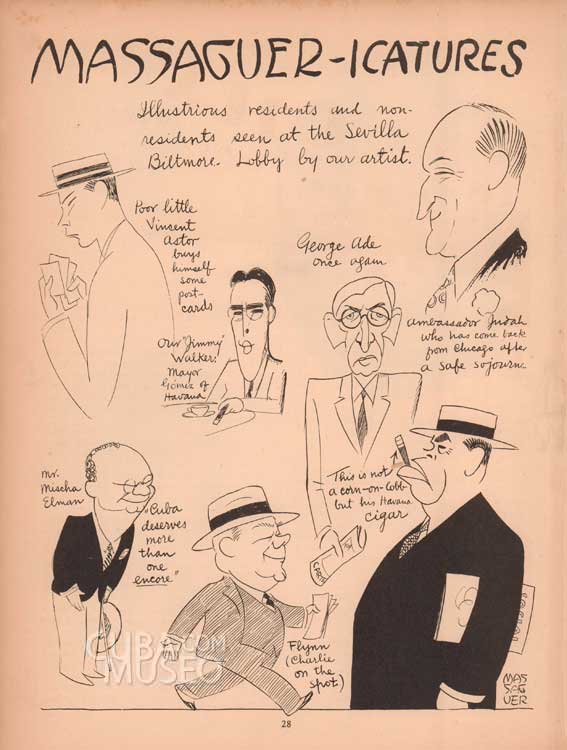 MASSAGUER-ICATURES
Illustrious residents and non-
residents seen at the Sevilla
Biltmore. Lobby by our artist.
Poor little
Vincent
Astor
buys
himself
some
post-
cards
George Ade
once again
Our "Jimmy"
Walker:
Mayor
Gómez of
Havana
ambassador Judah
who has come back
from Chicago after
a safe sojourn.
Mr.
Mischa
Elman
"Cuba
deserves
more
than
one
encore"
This is not
a corn-on-cobb
but his Havana
cigar
Flynn
(Charlie
on the
spot)
MAS
SAG
UER
CUBA
MUSEO
.COM
28